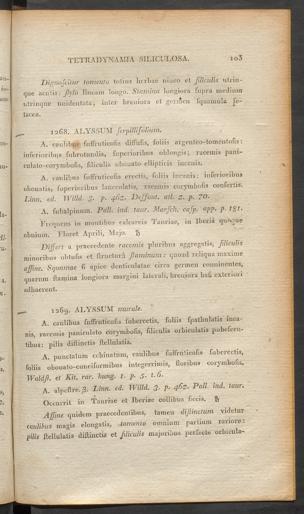 TETRADYNAMIA SILICULOSA. 103
Dignoscitur tomento totius herbae niueo et siliculis utrin-
que acutis; stylo lineam longo. Stamina longiora supra medium
utrinque unidentata; inter breuiora et germen squamula se-
tacea.
1268. ALYSSUM serpillifolium.
A. caulibus suffruticosis diffusis, foliis argenteo-tomentosis:
inferioribus subrotundis, superioribus oblongis; racemis pani-
culato-corymbosis, siliculis obouato ellipticis incanis.
A. caulibus suffruticosis erectis, foliis incanis: inferioribus
obouatis, superioribus lanceolatis, racemis corymbosis confertis.
Linn. ed. Willd. 3. p. 462. Desfont. atl. 2. p. 70.
A. subalpinum. Pall. ind. taur. Marsch. casp. app. p. 181.
Frequens in montibus calcareis Tauriae, in Iberia quoque
obuium. Floret Aprili, Majo. ♄
Differt a praecedente racemis pluribus aggregatis, siliculis
minoribus obtusis et structura staminum: quoad reliqua maxime
affine. Squamae si apice denticulatae circa germen conniuentes,
quarum stamina longiora margini laterali, breuiora basi exteriori
adhaerent.
1269. ALYSSUM murale.
A. caulibus suffruticosis suberectis, foliis spathulatis inca-
nis, racemis paniculato corymbosis, siliculis orbiculatis pubescen-
tibus: pilis distinctis stellulatis.
A. punctatum echinatum, caulibus suffruticosis suberectis,
foliis obouato-cuneiformibus integerrimis, floribus corymbosis.
Waldst. et Kit. rar. hung. 1. p. 5. t. 6.
A. alpestre. 3. Linn. ed. Willd. 3. p. 462. Pall. ind. taur.
Occurrit in Tauriae et Iberiae collibus siccis. ♄
Affine quidem praecedentibus, tamen distinctum videtur
caulibus magis elongatis, tomento omnium partium rariore:
pilis stellulatis distinctis et siliculis majoribus perfecte orbicula-